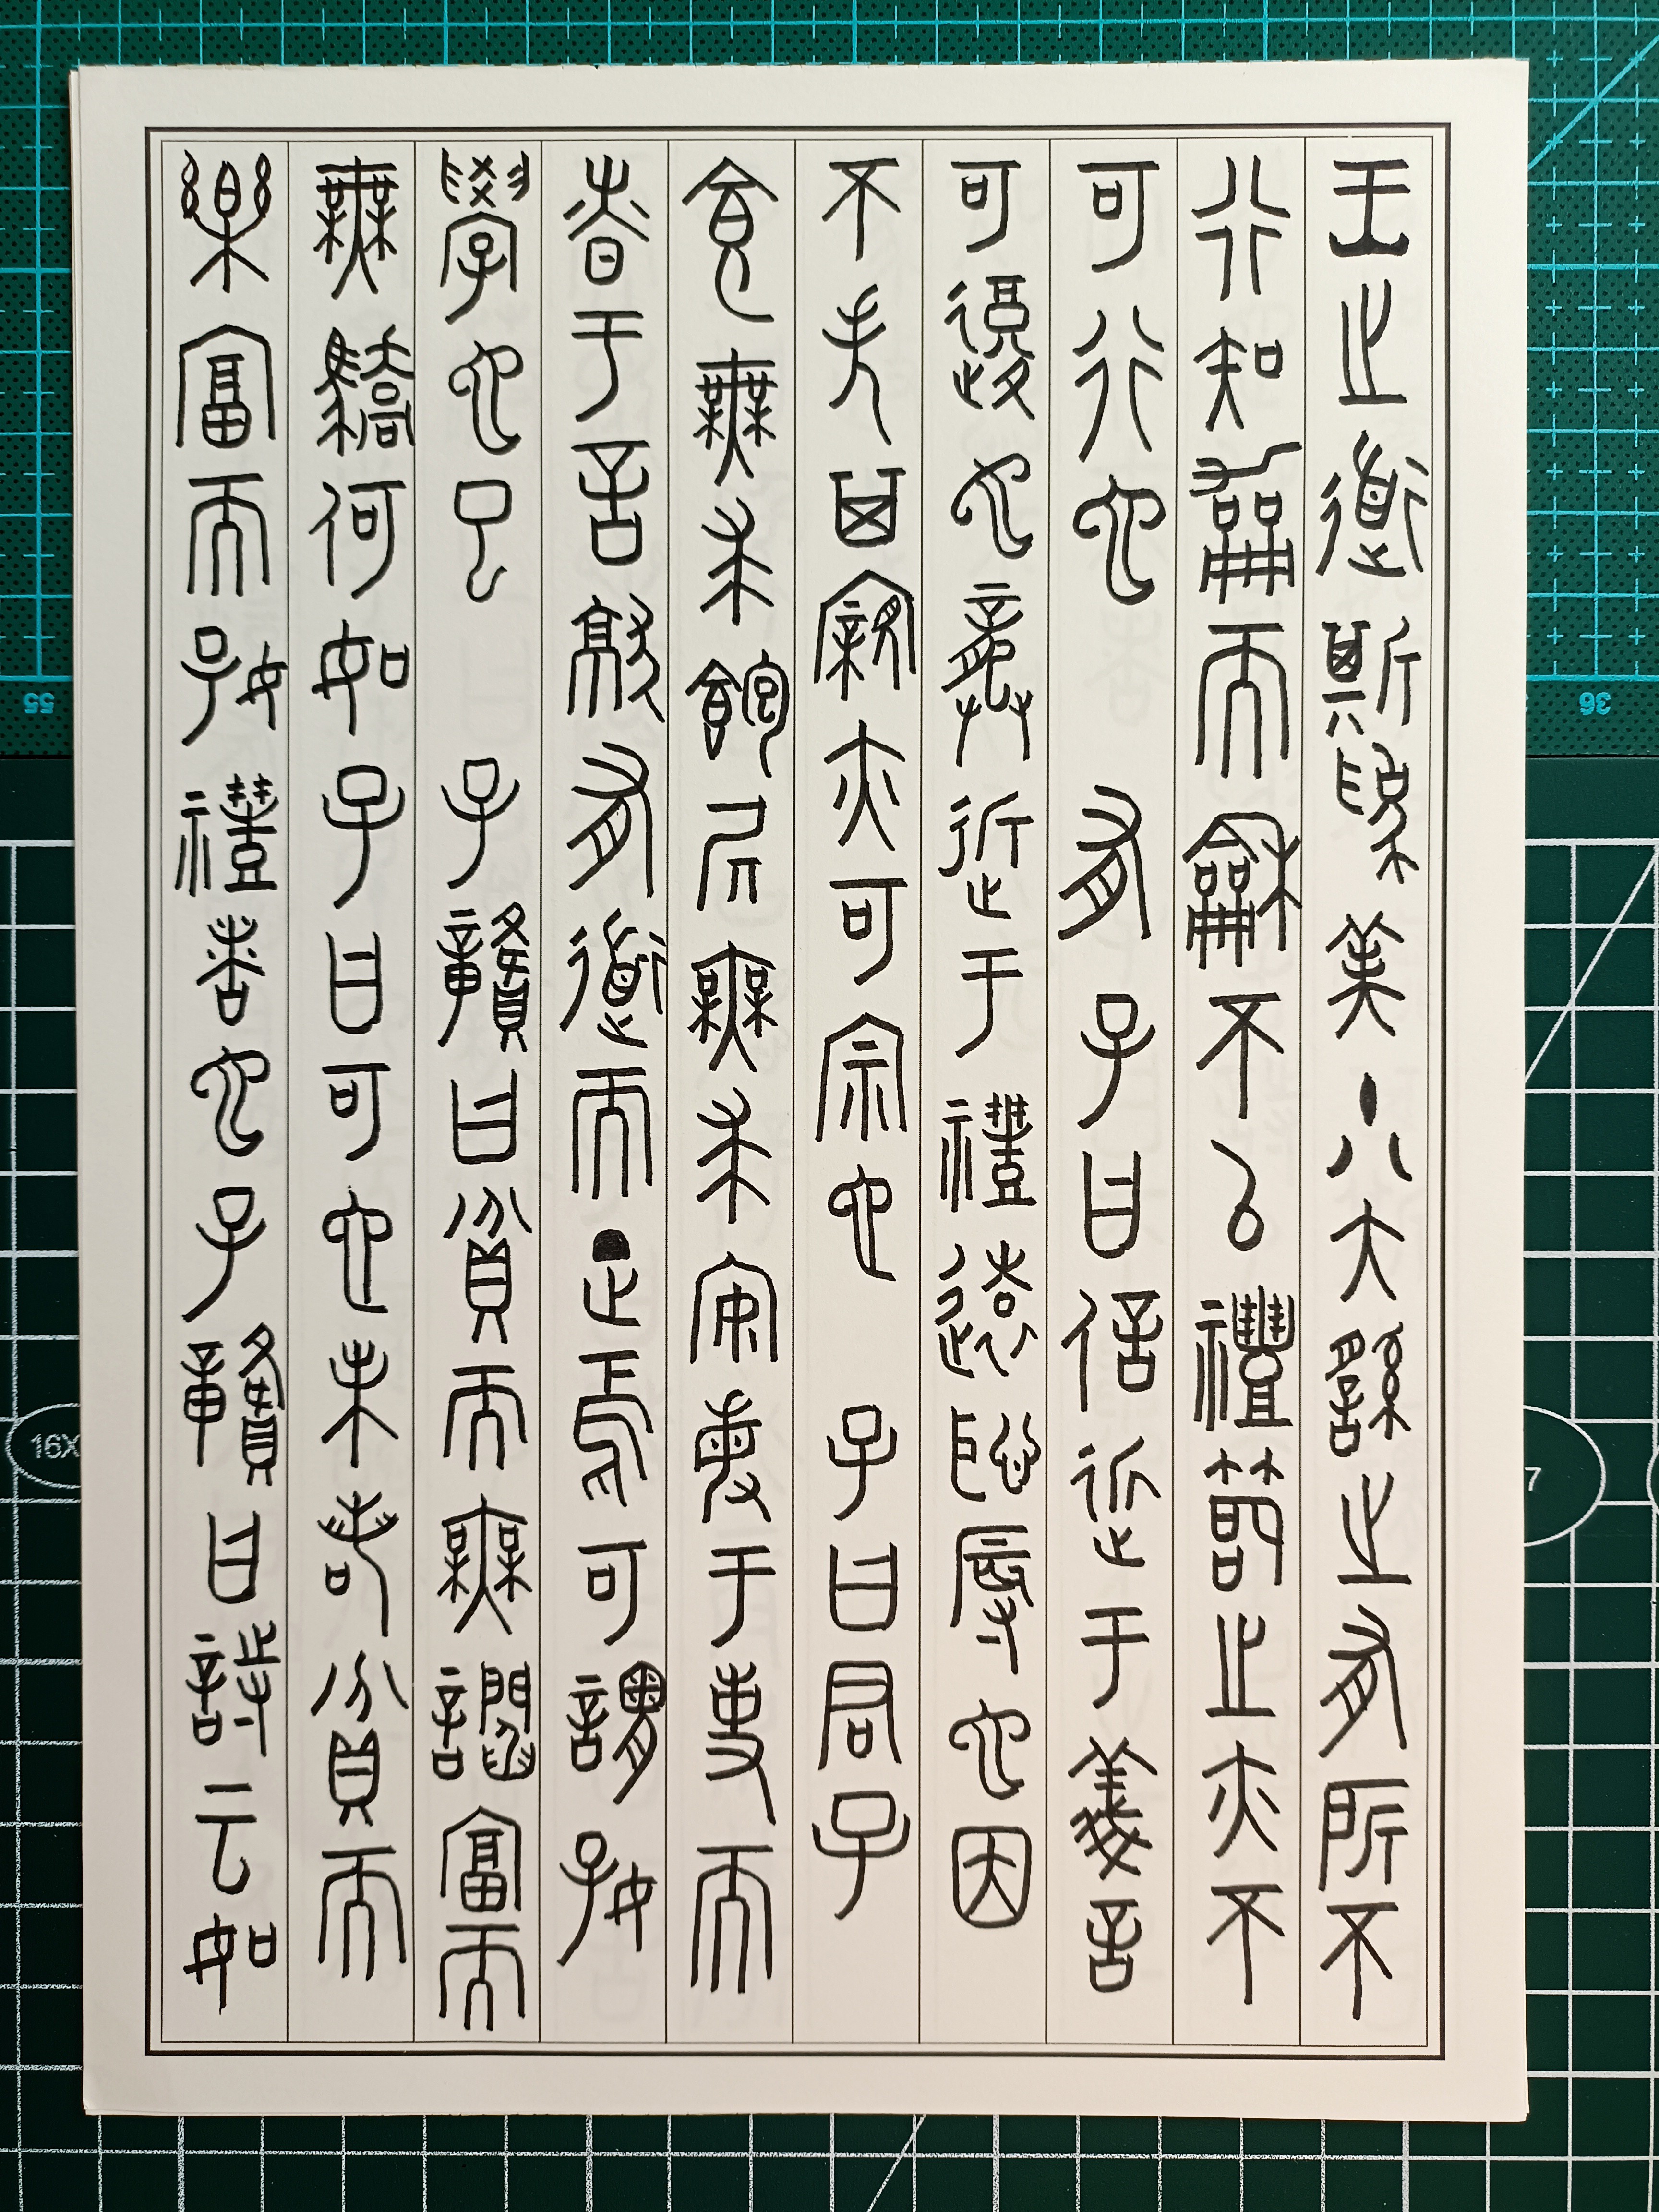 王之道斯為美小大繇之有所不
行知龢而龢不以禮節之亦不
可行也 有子曰信近于義言
可復也恭近于禮遠恥辱也因
不失其親亦可宗也 子曰君子
食無求飽居無求安敏于事而
慎于言就有道而正焉可謂好
學也已 子贛曰貧而無讇富而
無驕何如子曰可也未若貧而
樂富而好禮者也子贛曰詩云如